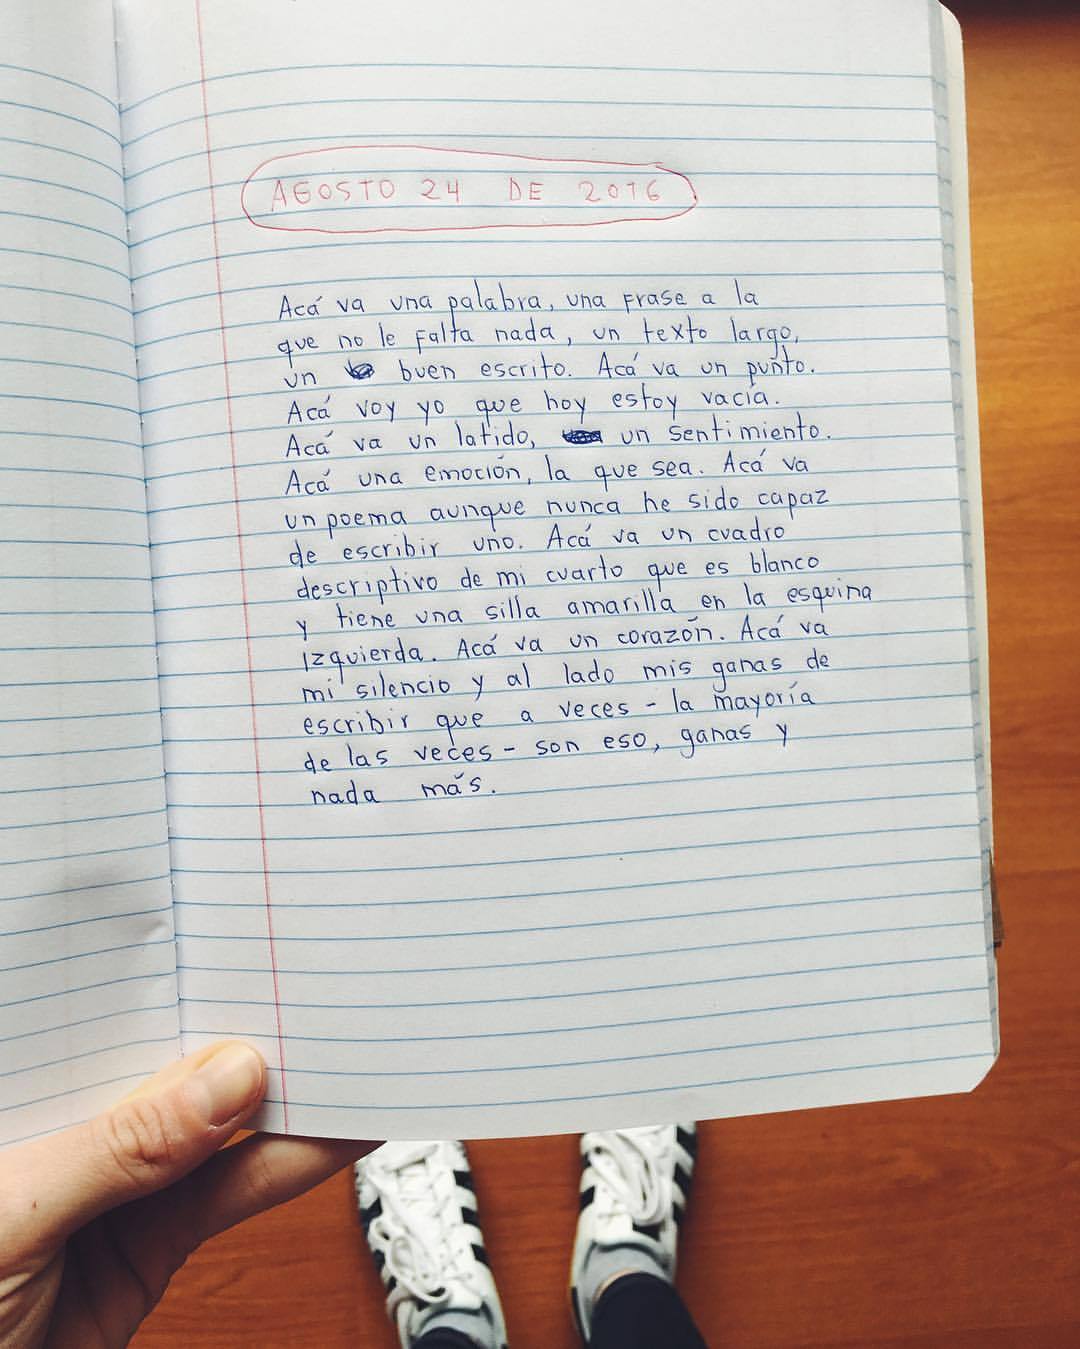 AGOSTO 24 DE 2016
Acá va una palabra, una frase a la
que no le falta nada, un texto largo,
un buen escrito. Acá va un punto.
Acá voy yo que hoy estoy vacía.
Acá va un latido, un sentimiento.
Acá una emoción, la que sea. Acá va
un poema aunque nunca he sido capaz
de escribir uno. Acá va un cuadro
descriptivo de mi cuarto que es blanco
y tiene una silla amarilla en la esquina
izquierda. Acá va un corazón. Acá va
mi silencio y al lado mis ganas de
escribir que a veces - la mayoría
de las veces - son eso, ganas y
nada más.